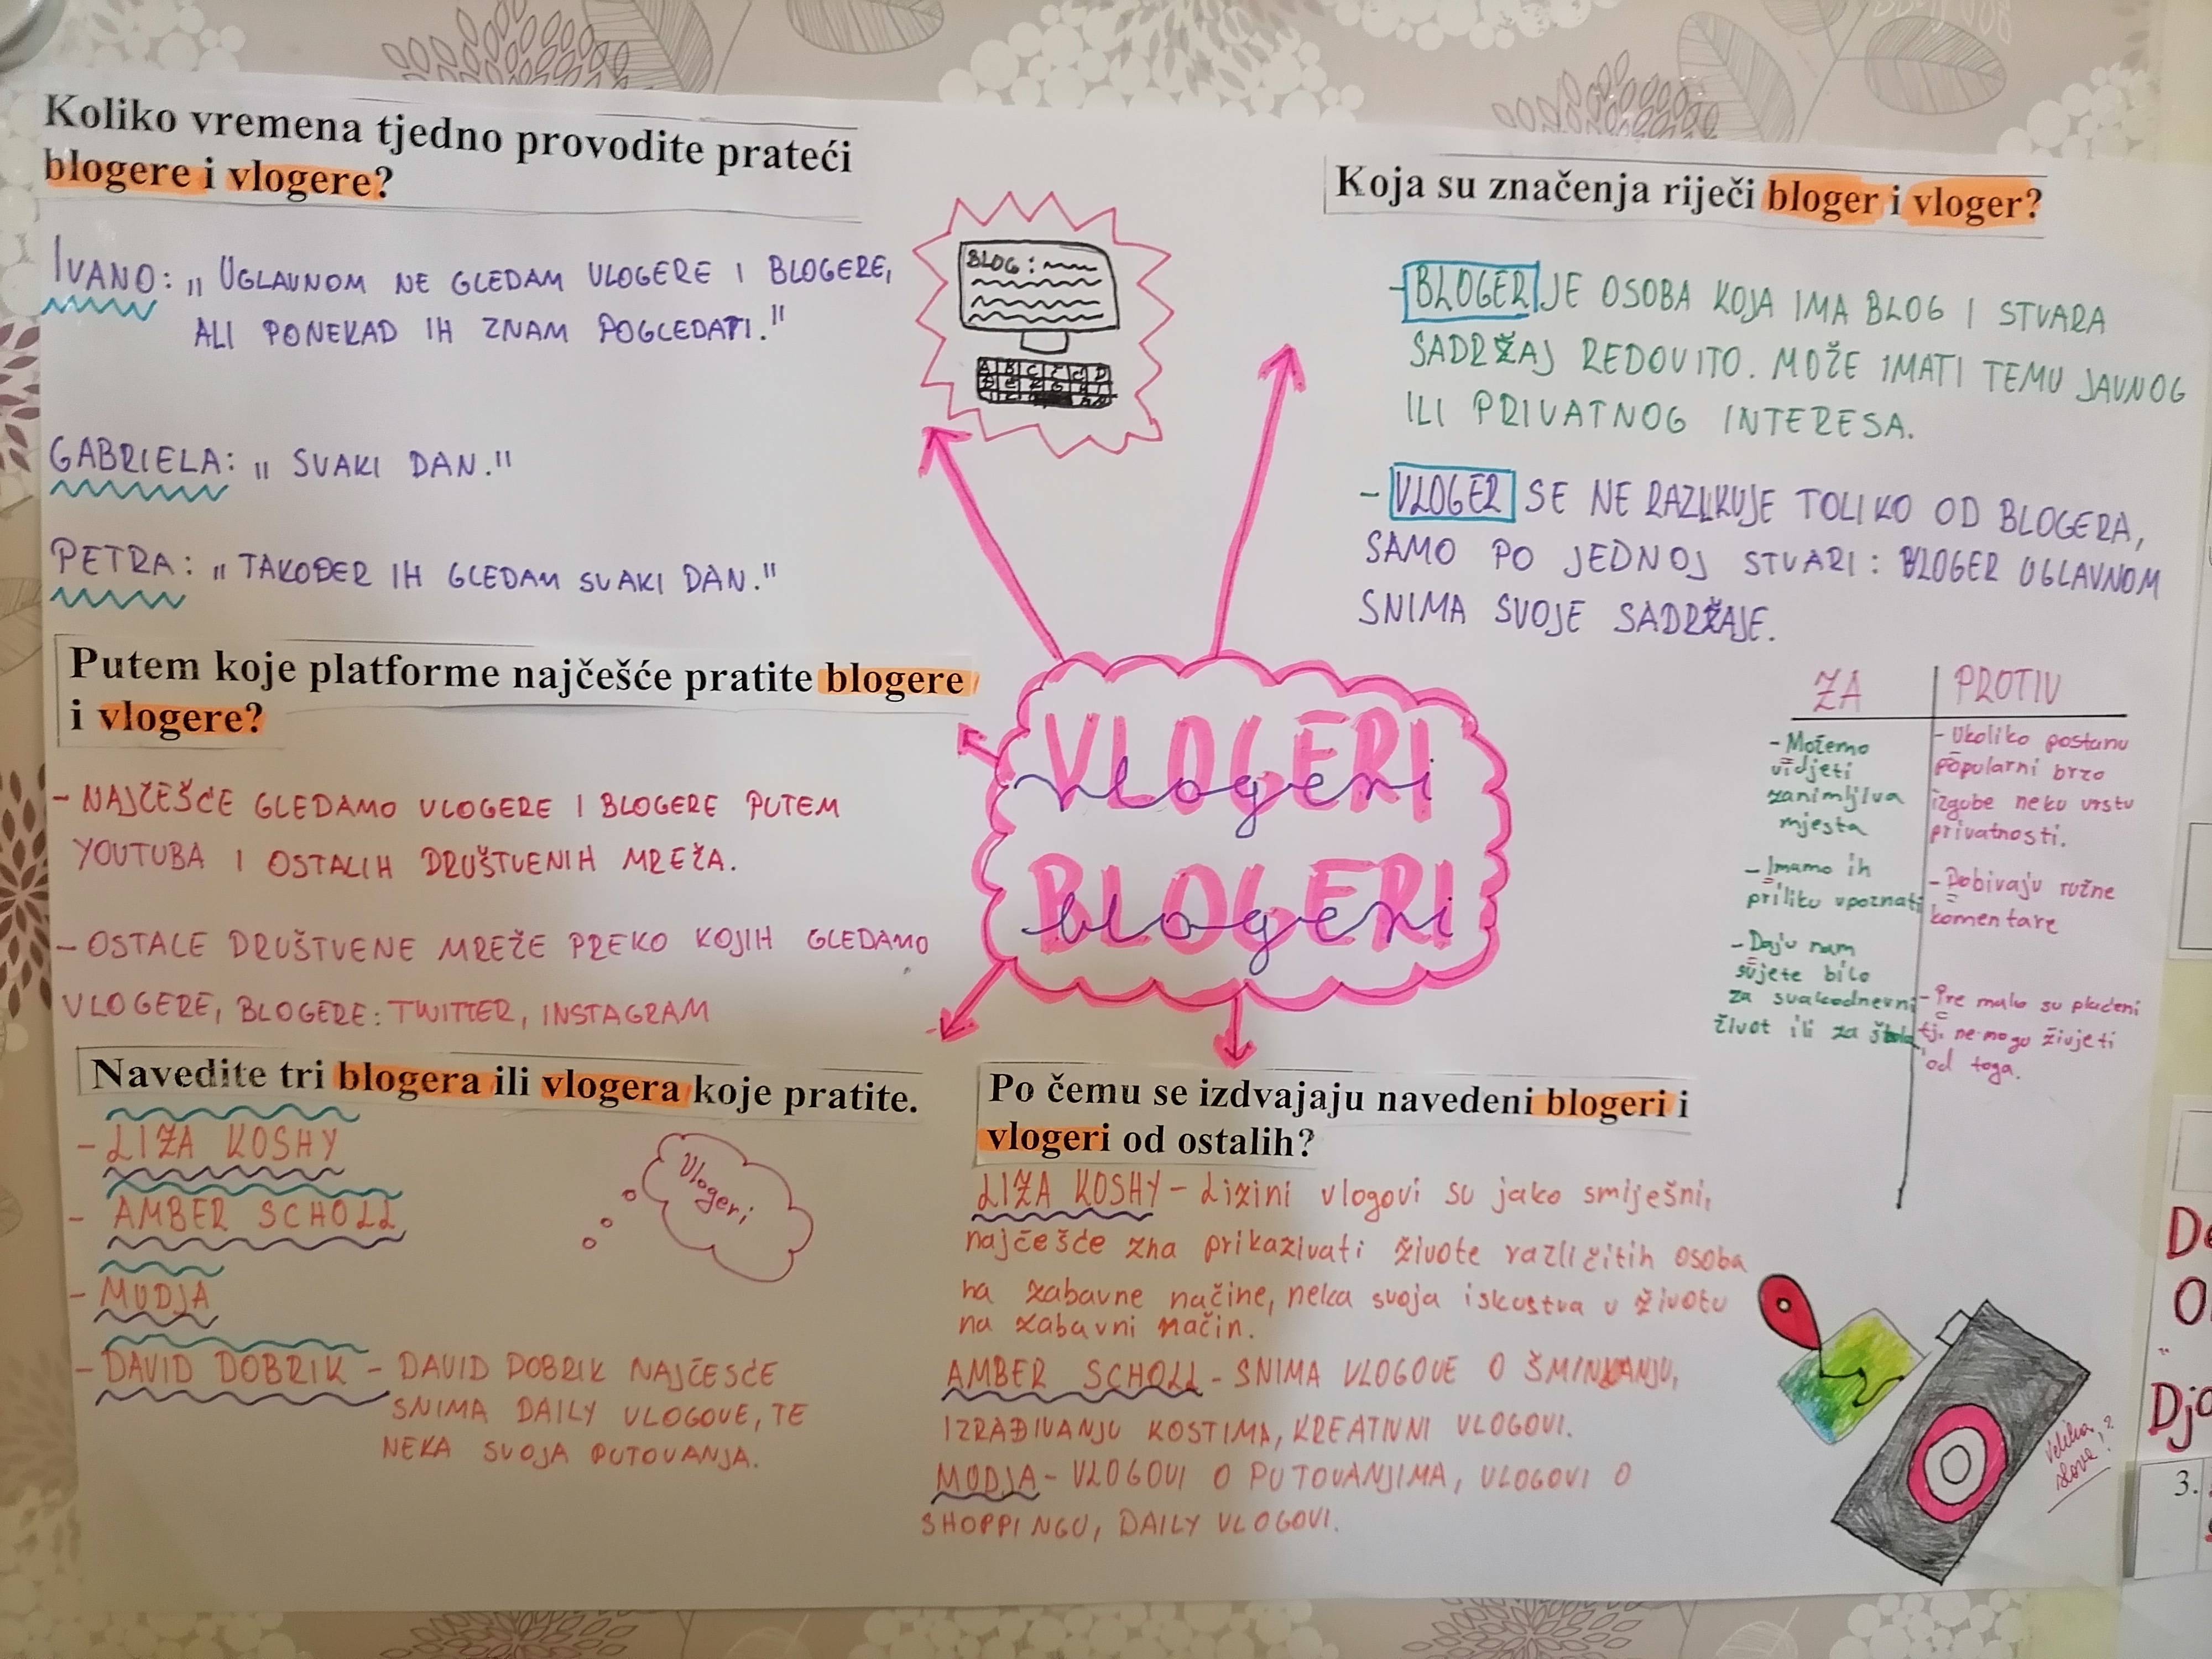 Koliko vremena tjedno provodite prateći
blogere i vlogere?
IVANO: „ UGLAVNOM NE GLEDAM VLOGERE I BLOGERE,
ALI PONEKAD IH ZNAM POGLEDATI."
GABRIELA: „ SVAKI DAN."
PETRA: „ TAKOĐER IH GLEDAM SVAKI DAN."
BLOG:
Koja su značenja riječi bloger i vloger?
- BLOGER JE OSOBA KOJA IMA BLOG I STVARA
SADRŽAJ REDOVITO. MOŽE IMATI TEMU JAVNOG
ILI PRIVATNOG INTERESA.
- VLOGER SE NE RAZLIKUJE TOLIKO OD BLOGERA,
SAMO PO JEDNOJ STVARI: BLOGER UGLAVNOM
SNIMA SVOJE SADRŽAJE.
Putem koje platforme najčešće pratite blogere
i vlogere?
- NAJČEŠĆE GLEDAMO VLOGERE I BLOGERE PUTEM
YOUTUBA I OSTALIH DRUŠTVENIH MREŽA.
- OSTALE DRUŠTVENE MREŽE PREKO KOJIH GLEDAMO
VLOGERE, BLOGERE: TWITTER, INSTAGRAM
VLOGERI
vlogeri
BLOGERI
blogeri
ZA
- Možemo
vidjeti
zanimljiva
mjesta
- Imamo ih
priliku upoznati
- Daju nam
savjete bilo
za svakodnevni
život ili za
PROTIV
- Ukoliko postanu
popularni brzo
izgube neku vrstu
privatnosti.
- Dobivaju ružne
komentare
- Pre malo su plaćeni
tj. ne mogu živjeti
od toga.
Navedite tri blogera ili vlogera koje pratite.
- LIZA KOSHY
- AMBER SCHOLL
- MUDJA
- DAVID DOBRIK - DAVID DOBRIK NAJČEŠĆE
SNIMA DAILY VLOGOVE, TE
NEKA SVOJA PUTOVANJA.
Vlogeri
Po čemu se izdvajaju navedeni blogeri i
vlogeri od ostalih?
LIZA KOSHY - Lizini vlogovi su jako smiješni,
najčešće zna prikazivati živote različitih osoba
na zabavne načine, neka svoja iskustva u životu
na zabavni način.
AMBER SCHOLL - SNIMA VLOGOVE O ŠMINKANJU,
IZRAĐIVANJU KOSTIMA, KREATIVNI VLOGOVI.
MUDJA - VLOGOVI O PUTOVANJIMA, VLOGOVI O
SHOPPINGU, DAILY VLOGOVI.
Velika
slova!?
3.